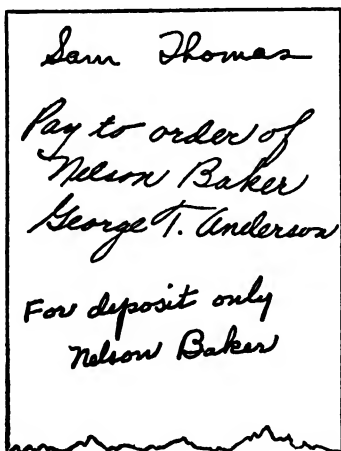 Sam Thomas
Pay to order of
Nelson Baker
George T. Anderson
For deposit only
Nelson Baker